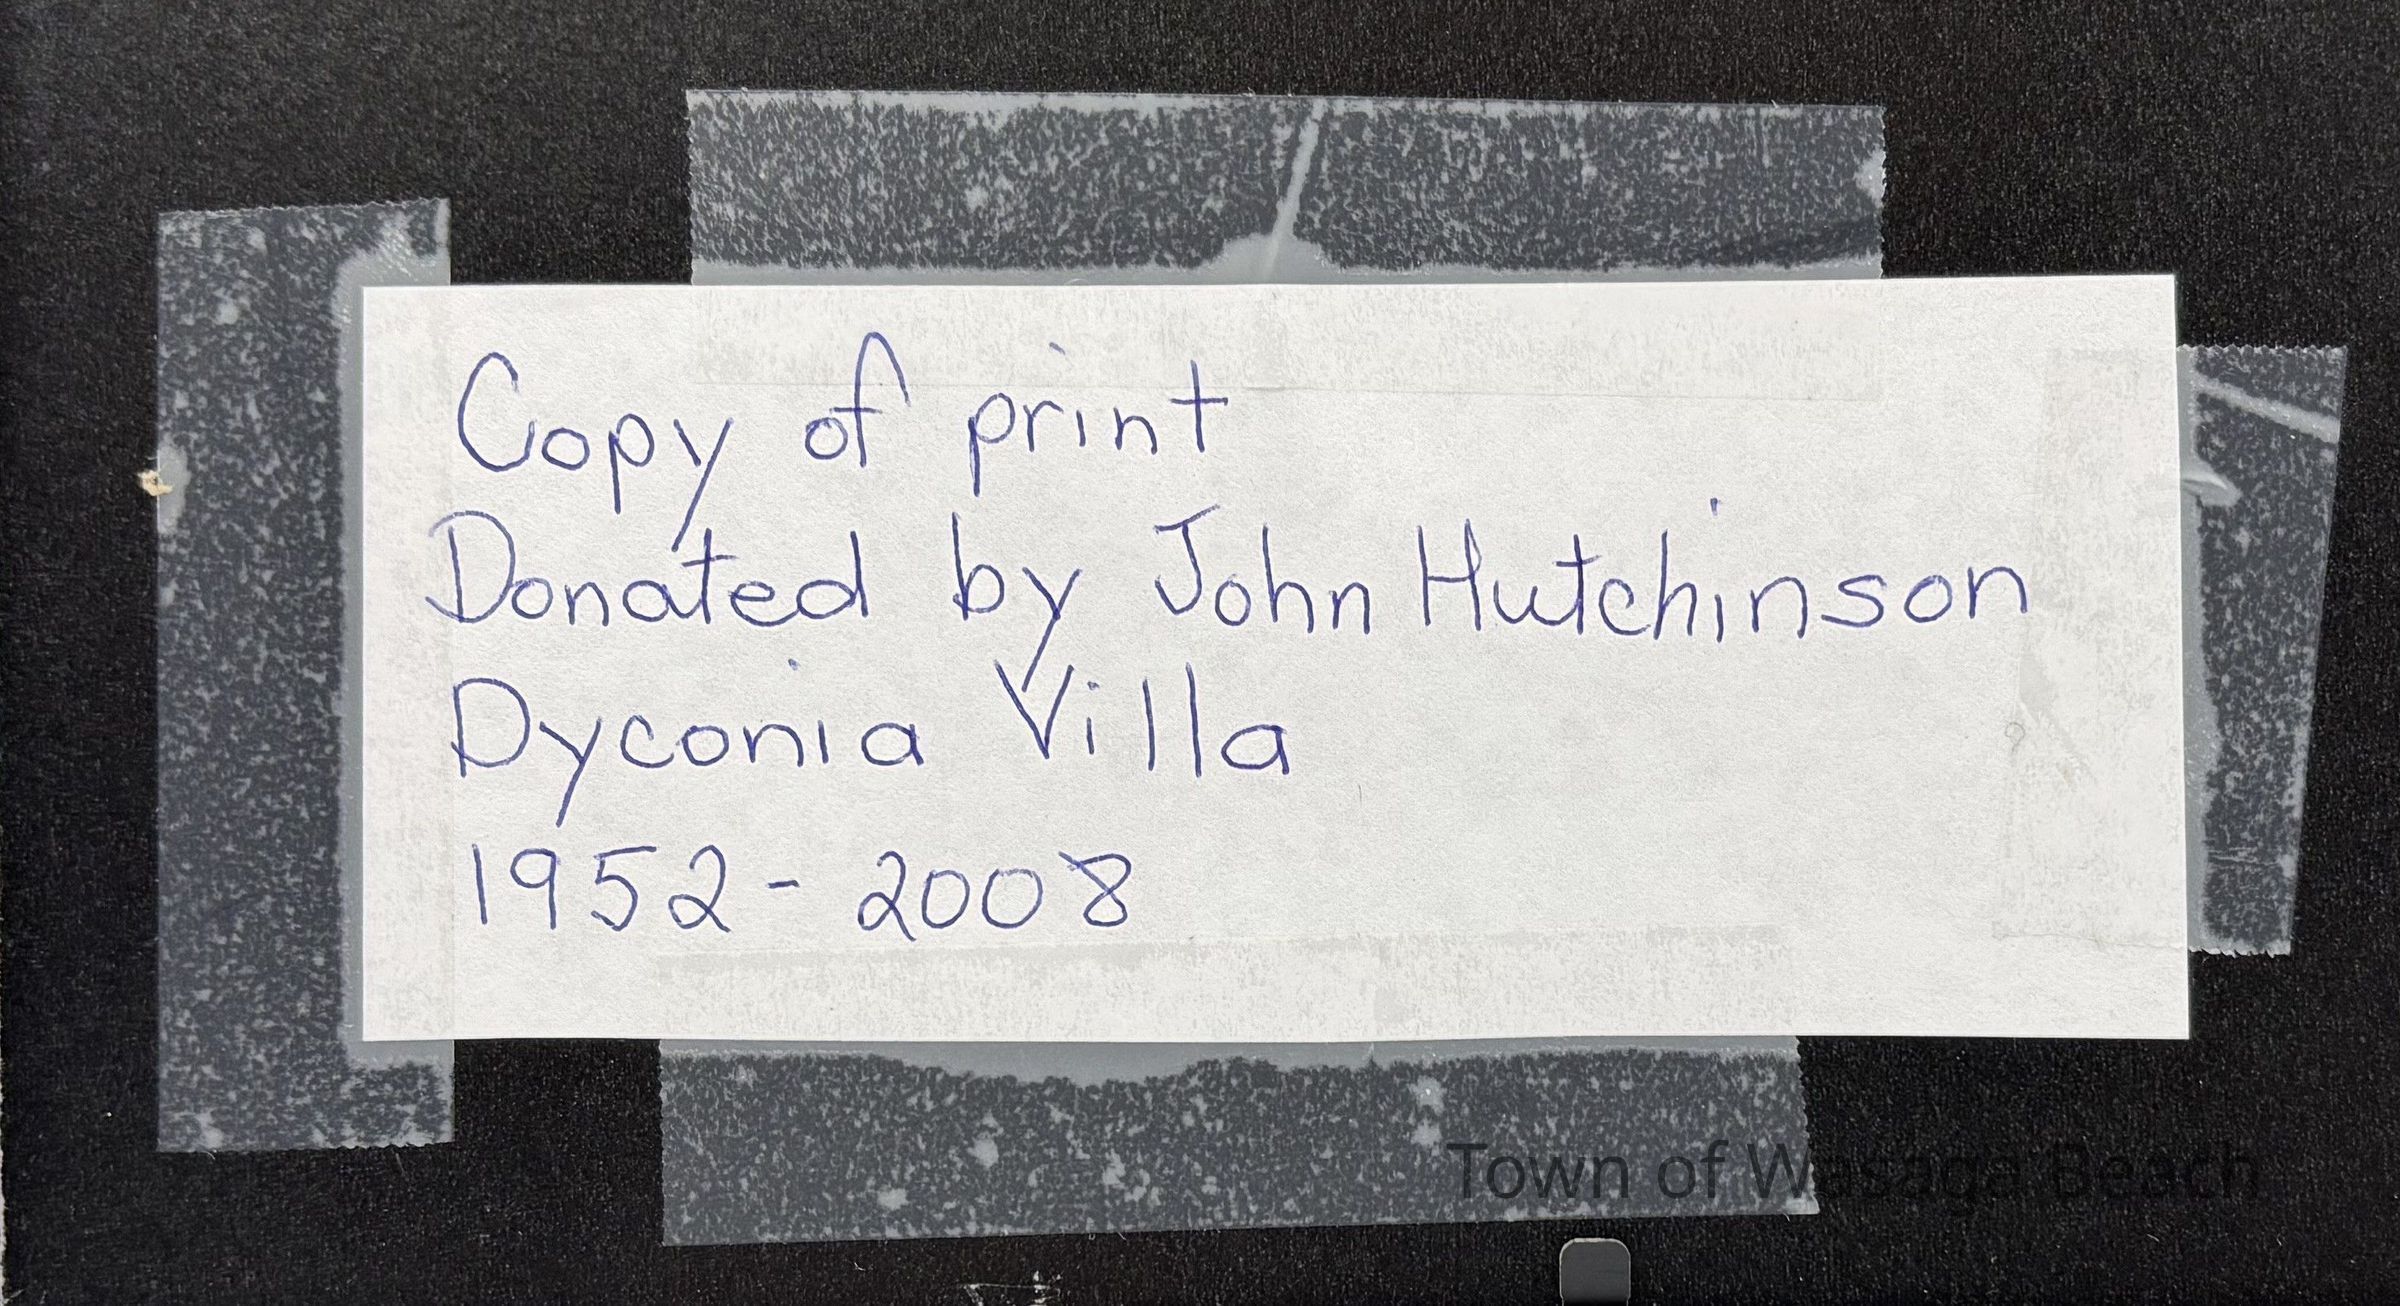 Copy of print
Donated by John Hutchinson
Dyconia Villa
1952 - 2008
Town of Wasaga Beach